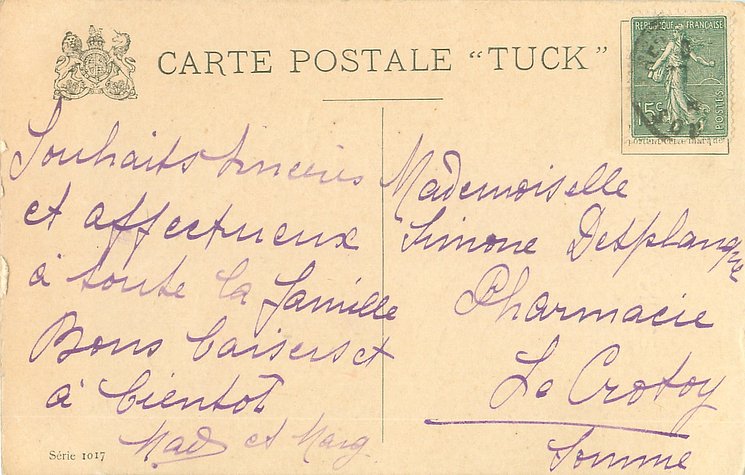 CARTE POSTALE "TUCK"
RÉPUBLIQUE FRANÇAISE
15c
POSTES
Souhaits sincères
et affectueux
à toute la famille
Bons baisers et
à bientôt
Mad et Marg
Mademoiselle
Simone Desplanque
Pharmacie
Le Crotoy
Somme
Série 1017